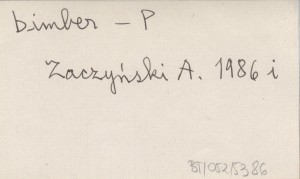 bimber – P
Zaczyński A. 1986 i
BT/052/53.86